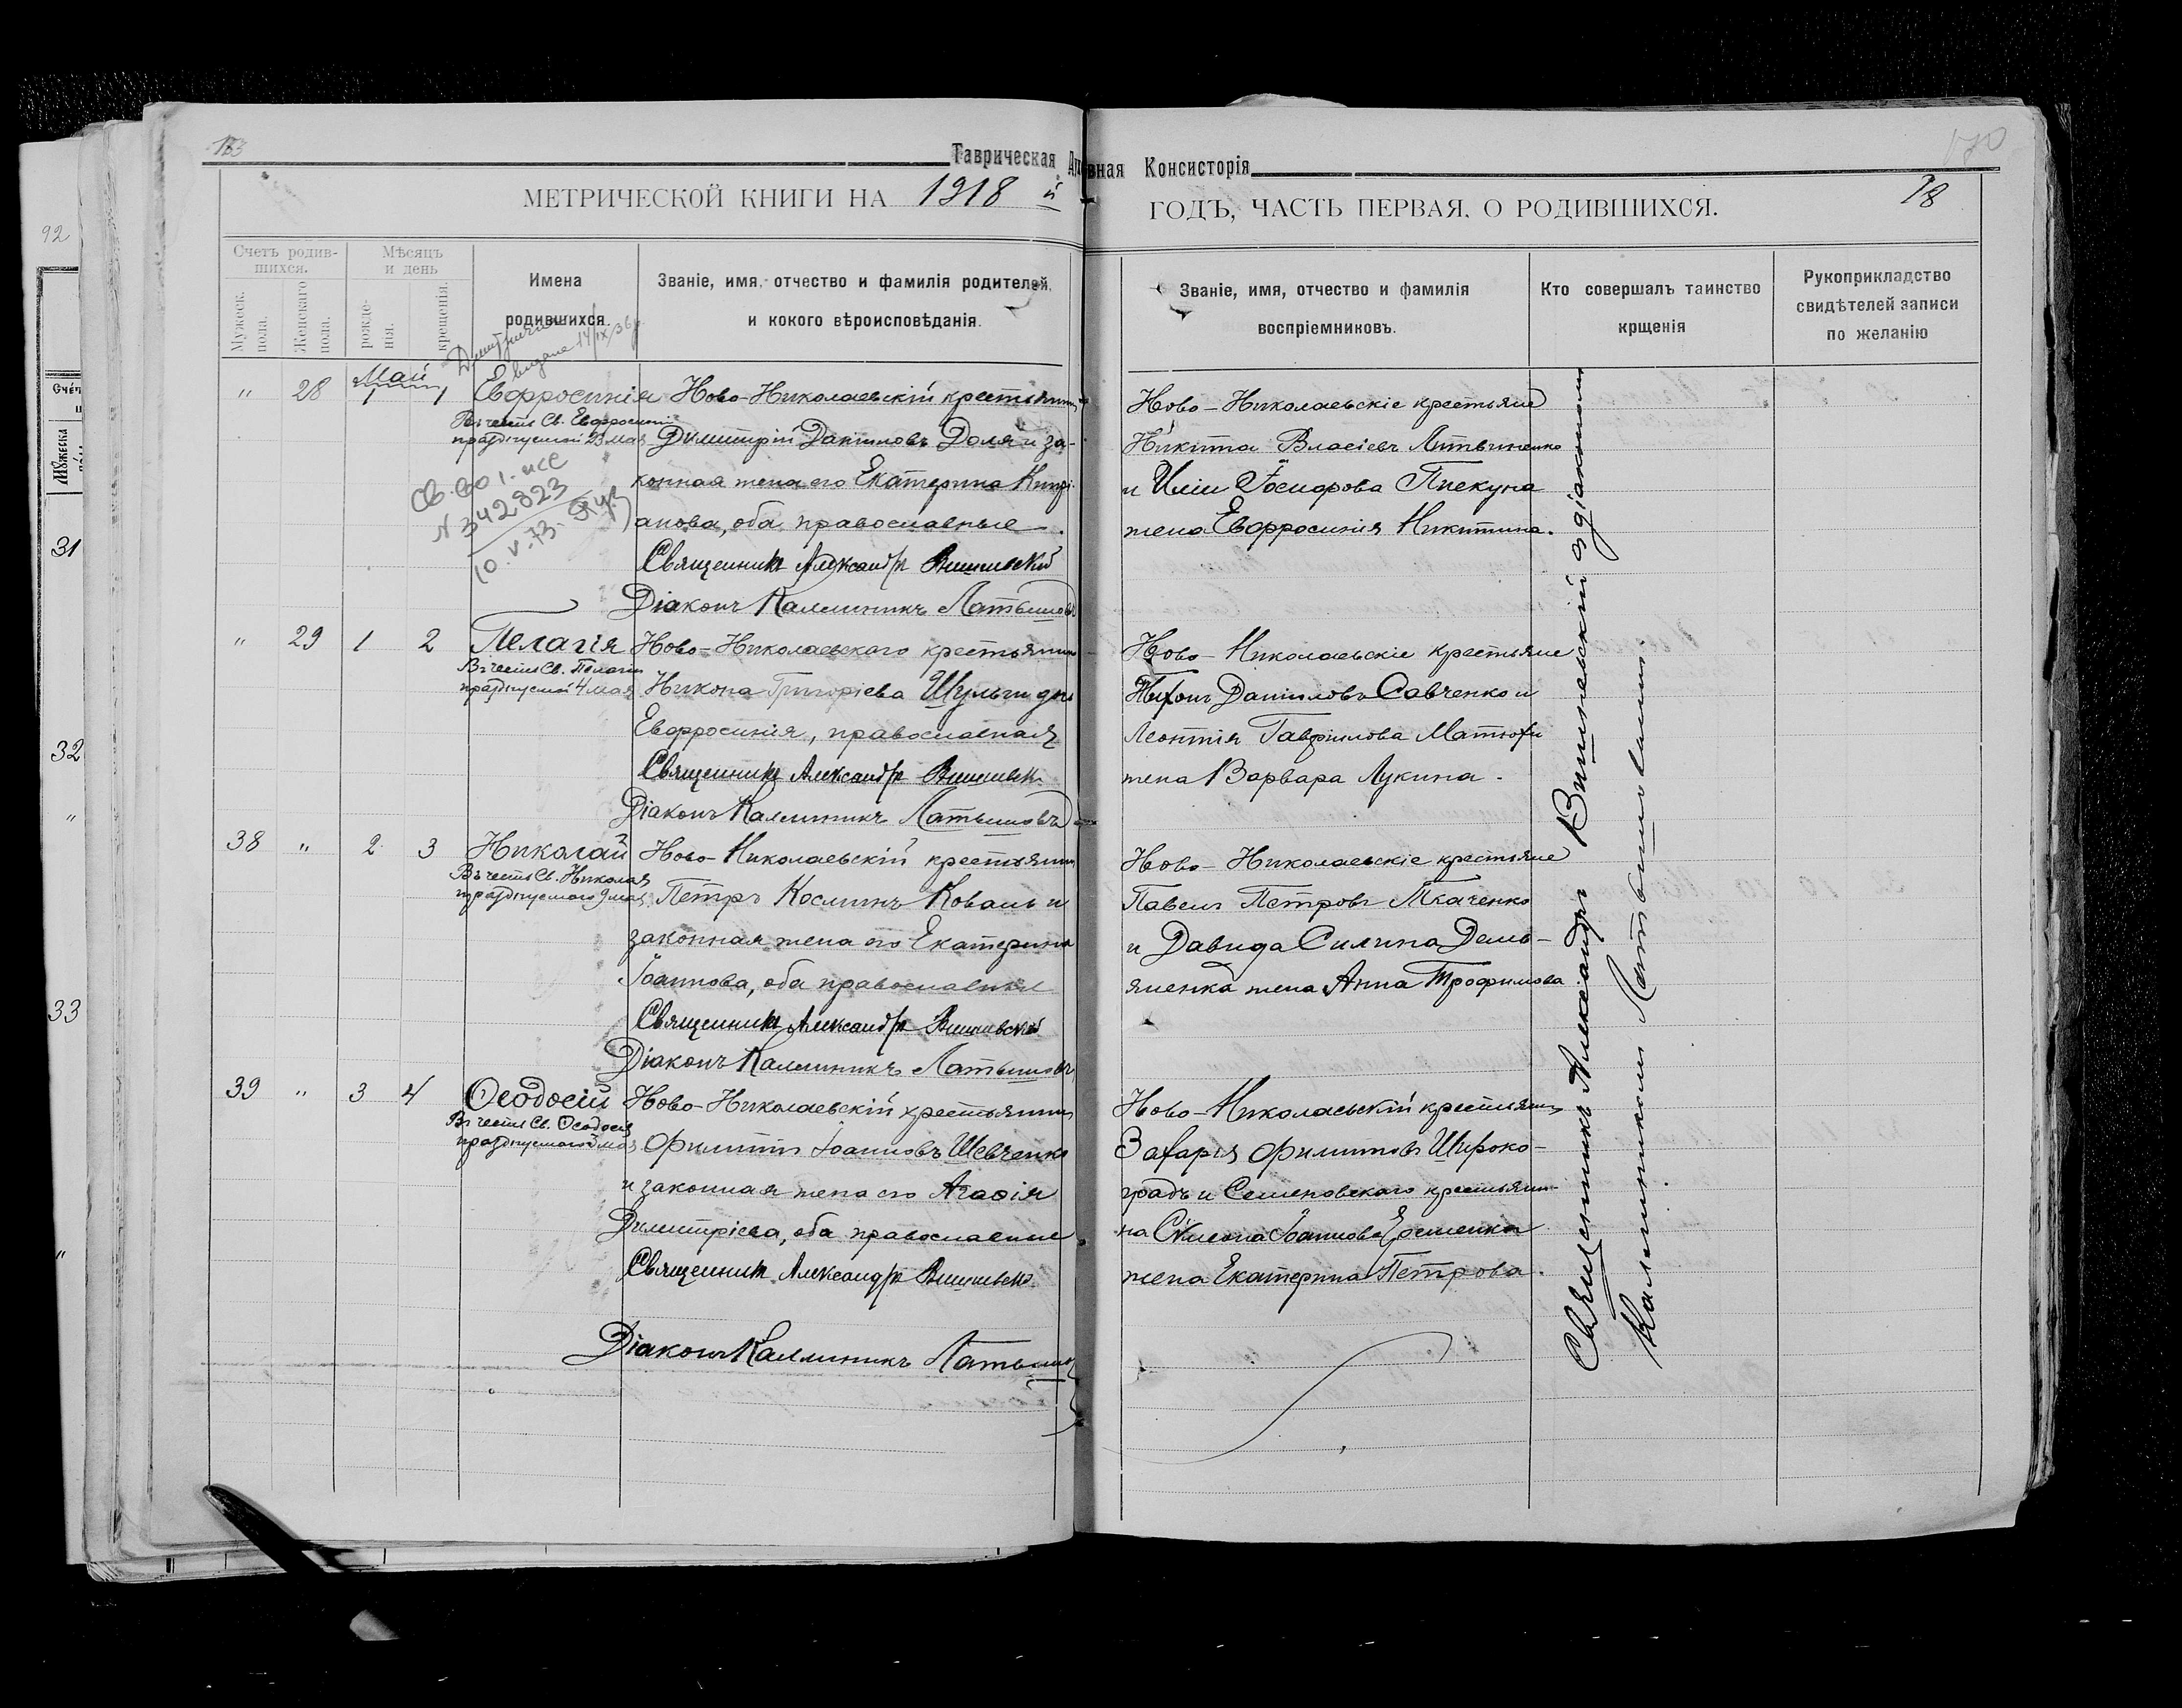 Таврическая Духовная Консисторія
МЕТРИЧЕСКОЙ КНИГИ НА 1918 й ГОДЪ, ЧАСТЬ ПЕРВАЯ, О РОДИВШИХСЯ.
78
170
Счетъ родив-
шихся.
Мужеск.
пола.
Женскаго
пола.
Мѣсяцъ
и день
рожде-
нія.
крещенія.
Имена
родившихся.
Званіе, имя, отчество и фамилія родителей,
и кокого вѣроисповѣданія.
Званіе, имя, отчество и фамилія
воспріемниковъ.
Кто совершалъ таинство
крщенія
Рукоприкладство
свидѣтелей записи
по желанію
Май
" 28 1 1 Евфросинія
Въ честь Св. Евфросиніи
празднуемой 23 мая
N 342823
10.V.73
Ново-Николаевскій крестьянинъ
Димитрій Даніиловъ Доля и за-
конная жена его Екатерина Кипрі-
анова, оба православные
Священникъ Александръ Вишневскій
Діаконъ Каллиникъ Латышовъ
Ново-Николаевскіе крестьяне
Никита Власіевъ Литвиненко
и Иліи Пиекуна
жена Евфросинія Никитина.
" 29 1 2 Пелагія
Въ честь Св. Пелагіи
празднуемой 4 мая
Ново-Николаевскаго крестьянина
Никона Григоріева Шульги дочь
Евфросинія, православная
Священникъ Александръ Вишневск.
Діаконъ Каллиникъ Латышовъ
Ново-Николаевскіе крестьяне
Даниловъ Савченко и
Леонтія Гавріилова Матюхи
жена Варвара Лукина.
38 " 2 3 Николай
Въ честь Св. Николая
празднуемого 9 мая
Ново-Николаевскій крестьянинъ
Петръ Косминъ Коваль и
законная жена его Екатерина
Іоаннова, оба православные
Священникъ Александръ Вишневскій
Діаконъ Каллиникъ Латышовъ
Ново-Николаевскіе крестьяне
Павелъ Петровъ Ткаченко
и Давида Силина Демь-
яненка жена Анна Трофимова
39 " 3 4 Ѳеодосій
Въ честь Св. Ѳеодосія
празднуемого 3 мая
Ново-Николаевскій крестьянинъ
Филиппъ Іоанновъ Шевченко
и законная жена его Агафія
Димитріева, оба православные
Священникъ Александръ Вишневск.
Діаконъ Каллиникъ Латышовъ
Ново-Николаевскій крестьянинъ
Захарія Филипповъ Широко-
градъ и Семеновскаго крестьяни-
на Симеона Іоаннова Еременка
жена Екатерина Петрова.
Священникъ Александръ Вишневскій съ діакономъ
Каллиникомъ Латышовымъ.
92
31
32
"
33
"